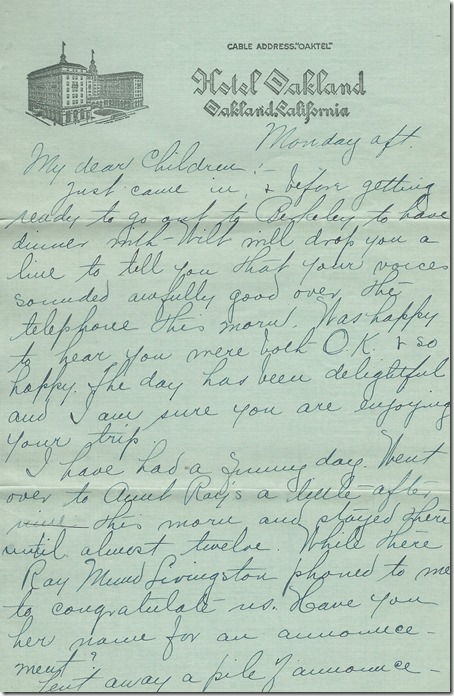 CABLE ADDRESS, "OAKTEL"
Hotel Oakland
Oakland, California
Monday aft.
My dear Children:-
Just came in, & before getting
ready to go out to Berkeley to have
dinner with Wilt will drop you a
line to tell you that your voices
sounded awfully good over the
telephone this morn. Was happy
to hear you were both O.K. & so
happy. The day has been delightful
and I am sure you are enjoying
your trip.
I have had a day. Went
over to Aunt Ray's a little after
this morn and stayed there
until almost twelve. While there
Ray Livingston phoned to me
to congratulate us. Have you
her name for an announce-
ment?
Sent away a pile of announce-